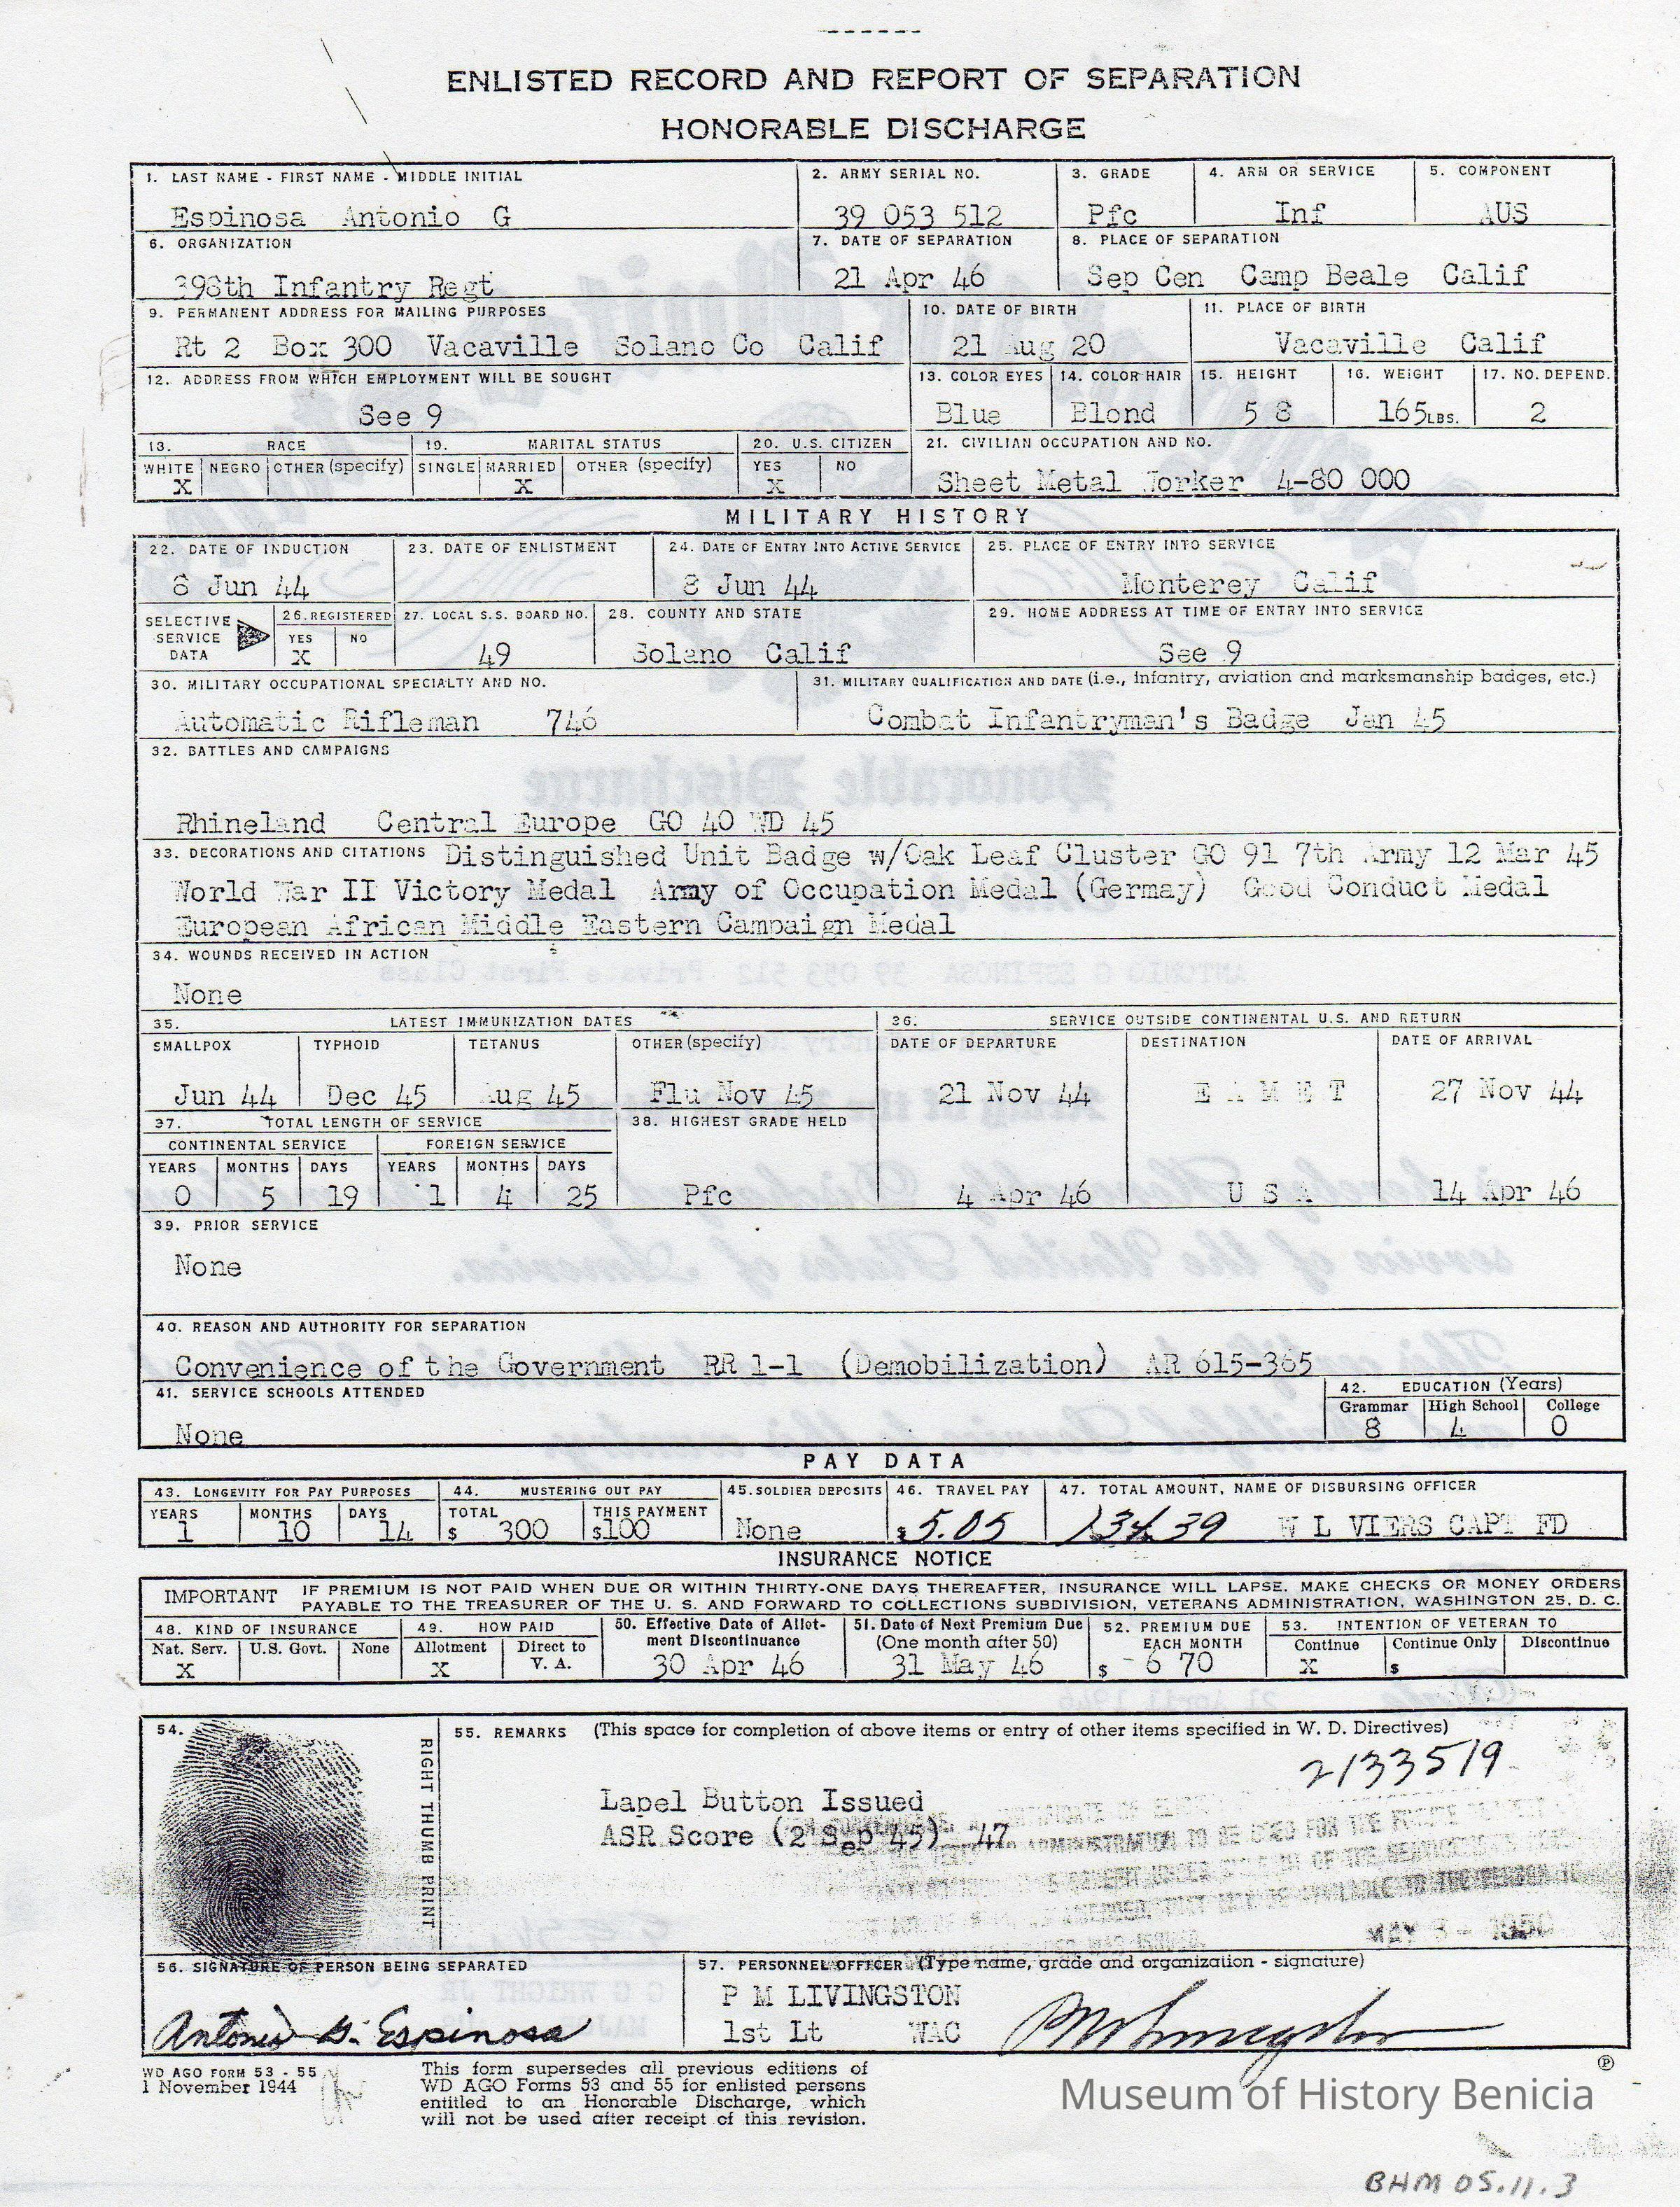 ENLISTED RECORD AND REPORT OF SEPARATION
HONORABLE DISCHARGE
1. LAST NAME - FIRST NAME - MIDDLE INITIAL 2. ARMY SERIAL NO. 3. GRADE 4. ARM OR SERVICE 5. COMPONENT
Espinosa Antonio G 39 053 512 Pfc Inf AUS
6. ORGANIZATION 7. DATE OF SEPARATION 8. PLACE OF SEPARATION
398th Infantry Regt 21 Apr 46 Sep Cen Camp Beale Calif
9. PERMANENT ADDRESS FOR MAILING PURPOSES 10. DATE OF BIRTH 11. PLACE OF BIRTH
Rt 2 Box 300 Vacaville Solano Co Calif 21 Aug 20 Vacaville Calif
12. ADDRESS FROM WHICH EMPLOYMENT WILL BE SOUGHT 13. COLOR EYES 14. COLOR HAIR 15. HEIGHT 16. WEIGHT 17. NO. DEPEND.
See 9 Blue Blond 5 8 165 LBS. 2
18. RACE 19. MARITAL STATUS 20. U.S. CITIZEN 21. CIVILIAN OCCUPATION AND NO.
WHITE NEGRO OTHER (specify) SINGLE MARRIED OTHER (specify) YES NO
X X X Sheet Metal Worker 4-80 000
MILITARY HISTORY
22. DATE OF INDUCTION 23. DATE OF ENLISTMENT 24. DATE OF ENTRY INTO ACTIVE SERVICE 25. PLACE OF ENTRY INTO SERVICE
8 Jun 44 8 Jun 44 Monterey Calif
SELECTIVE SERVICE DATA 26. REGISTERED 27. LOCAL S.S. BOARD NO. 28. COUNTY AND STATE 29. HOME ADDRESS AT TIME OF ENTRY INTO SERVICE
YES NO
X 49 Solano Calif See 9
30. MILITARY OCCUPATIONAL SPECIALTY AND NO. 31. MILITARY QUALIFICATION AND DATE (i.e., infantry, aviation and marksmanship badges, etc.)
Automatic Rifleman 746 Combat Infantryman's Badge Jan 45
32. BATTLES AND CAMPAIGNS
Rhineland Central Europe GO 40 WD 45
33. DECORATIONS AND CITATIONS Distinguished Unit Badge w/Oak Leaf Cluster GO 91 7th Army 12 Mar 45
World War II Victory Medal Army of Occupation Medal (Germay) Good Conduct Medal
European African Middle Eastern Campaign Medal
34. WOUNDS RECEIVED IN ACTION
None
35. LATEST IMMUNIZATION DATES 36. SERVICE OUTSIDE CONTINENTAL U.S. AND RETURN
SMALLPOX TYPHOID TETANUS OTHER (specify) DATE OF DEPARTURE DESTINATION DATE OF ARRIVAL
Jun 44 Dec 45 Aug 45 Flu Nov 45 21 Nov 44 E A M E T 27 Nov 44
37. TOTAL LENGTH OF SERVICE 38. HIGHEST GRADE HELD
CONTINENTAL SERVICE FOREIGN SERVICE
YEARS MONTHS DAYS YEARS MONTHS DAYS
0 5 19 1 4 25 Pfc 4 Apr 46 U S A 14 Apr 46
39. PRIOR SERVICE
None
40. REASON AND AUTHORITY FOR SEPARATION
Convenience of the Government RR 1-1 (Demobilization) AR 615-365
41. SERVICE SCHOOLS ATTENDED 42. EDUCATION (Years)
Grammar High School College
None 8 4 0
PAY DATA
43. LONGEVITY FOR PAY PURPOSES 44. MUSTERING OUT PAY 45. SOLDIER DEPOSITS 46. TRAVEL PAY 47. TOTAL AMOUNT, NAME OF DISBURSING OFFICER
YEARS MONTHS DAYS TOTAL THIS PAYMENT
1 10 14 $ 300 $100 None $5.05 134.39 W L VIERS CAPT FD
INSURANCE NOTICE
IMPORTANT IF PREMIUM IS NOT PAID WHEN DUE OR WITHIN THIRTY-ONE DAYS THEREAFTER, INSURANCE WILL LAPSE. MAKE CHECKS OR MONEY ORDERS
PAYABLE TO THE TREASURER OF THE U. S. AND FORWARD TO COLLECTIONS SUBDIVISION, VETERANS ADMINISTRATION, WASHINGTON 25, D. C.
48. KIND OF INSURANCE 49. HOW PAID 50. Effective Date of Allotment Discontinuance 51. Date of Next Premium Due (One month after 50) 52. PREMIUM DUE EACH MONTH 53. INTENTION OF VETERAN TO
Nat. Serv. U.S. Govt. None Allotment Direct to V. A. Continue Continue Only Discontinue
X X 30 Apr 46 31 May 46 $ 6 70 X $
54. RIGHT THUMB PRINT 55. REMARKS (This space for completion of above items or entry of other items specified in W. D. Directives)
2133519
Lapel Button Issued
ASR Score (2 Sep 45) 47
ADMINISTRATION TO BE USED FOR THE
AVAILABLE TO THE PERSON
MAY 3 - 1950
56. SIGNATURE OF PERSON BEING SEPARATED 57. PERSONNEL OFFICER (Type name, grade and organization - signature)
P M LIVINGSTON
Antonio G. Espinosa 1st Lt WAC PM Livingston
WD AGO FORM 53 - 55
1 November 1944
This form supersedes all previous editions of
WD AGO Forms 53 and 55 for enlisted persons
entitled to an Honorable Discharge, which
will not be used after receipt of this revision.
Museum of History Benicia
BHM 05.11.3